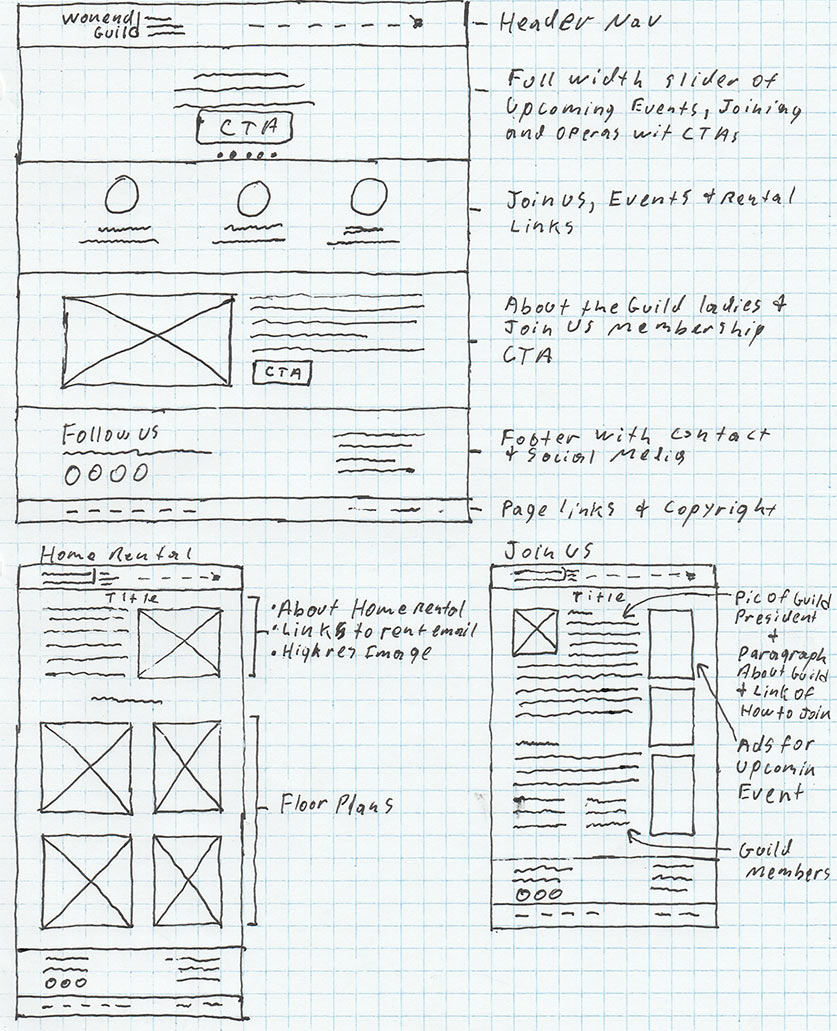 Womens
Guild
CTA
Header Nav
Full width slider of
Upcoming Events, Joining
and operas wit CTAs
Join us, Events & Rental
Links
CTA
About the Guild ladies &
Join us membership
CTA
Follow us
Footer with contact
& Social Media
Page links & Copyright
Home Rental
Title
• About Home rental
• Links to rent email
• High res Image
Floor Plans
Join us
Title
Pic of Guild
President
&
Paragraph
About Guild
& Link of
How to Join
Ads for
Upcomin
Event
Guild
Members